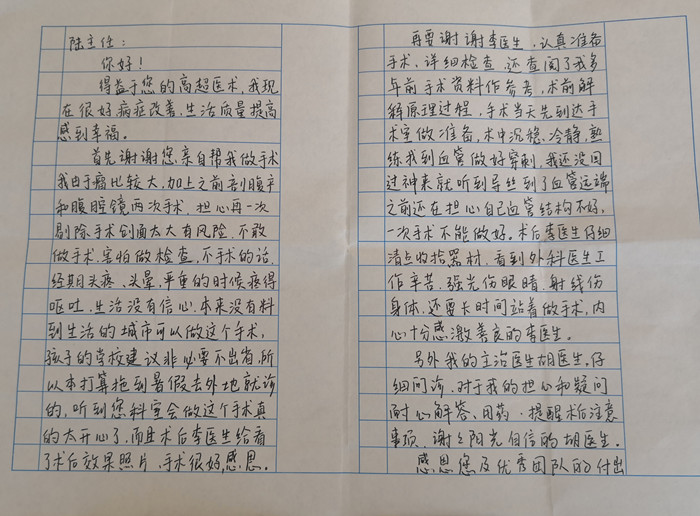 陆主任：
你好！
得益于您的高超医术，我现
在很好病症改善，生活质量提高
感到幸福。
首先谢谢您，亲自帮我做手术
我由于瘤比较大，加上之前剖腹产
和腹腔镜两次手术，担心再一次
剔除手术创面太大有风险，不敢
做手术，害怕做检查，不手术的话，
经期头疼、头晕，严重的时候疼得
呕吐，生活没有信心，本来没有料
到生活的城市可以做这个手术，
孩子的学校建议非必要不出省，所
以本打算拖到暑假去外地就诊
的，听到您科室会做这个手术真
的太开心了，而且术后李医生给看
了术后效果照片，手术很好，感恩。
再要谢谢李医生，认真准备
手术，详细检查，还查阅了我多
年前手术资料作参考，术前解
释原理过程，手术当天先到达手
术室做准备，术中沉稳、冷静，熟
练找到血管做好穿刺，我还没回
过神来就听到导丝到了血管远端
之前还在担心自己血管结构不好，
一次手术不能做好。术后李医生仔细
清点收拾器材，看到外科医生工
作辛苦，强光伤眼睛，射线伤
身体，还要长时间站着做手术，内
心十分感激善良的李医生。
另外我的主治医生胡医生，仔
细问诊，对于我的担心和疑问
耐心解答，用药，提醒术后注意
事项，谢谢阳光自信的胡医生。
感恩您及优秀团队的付出